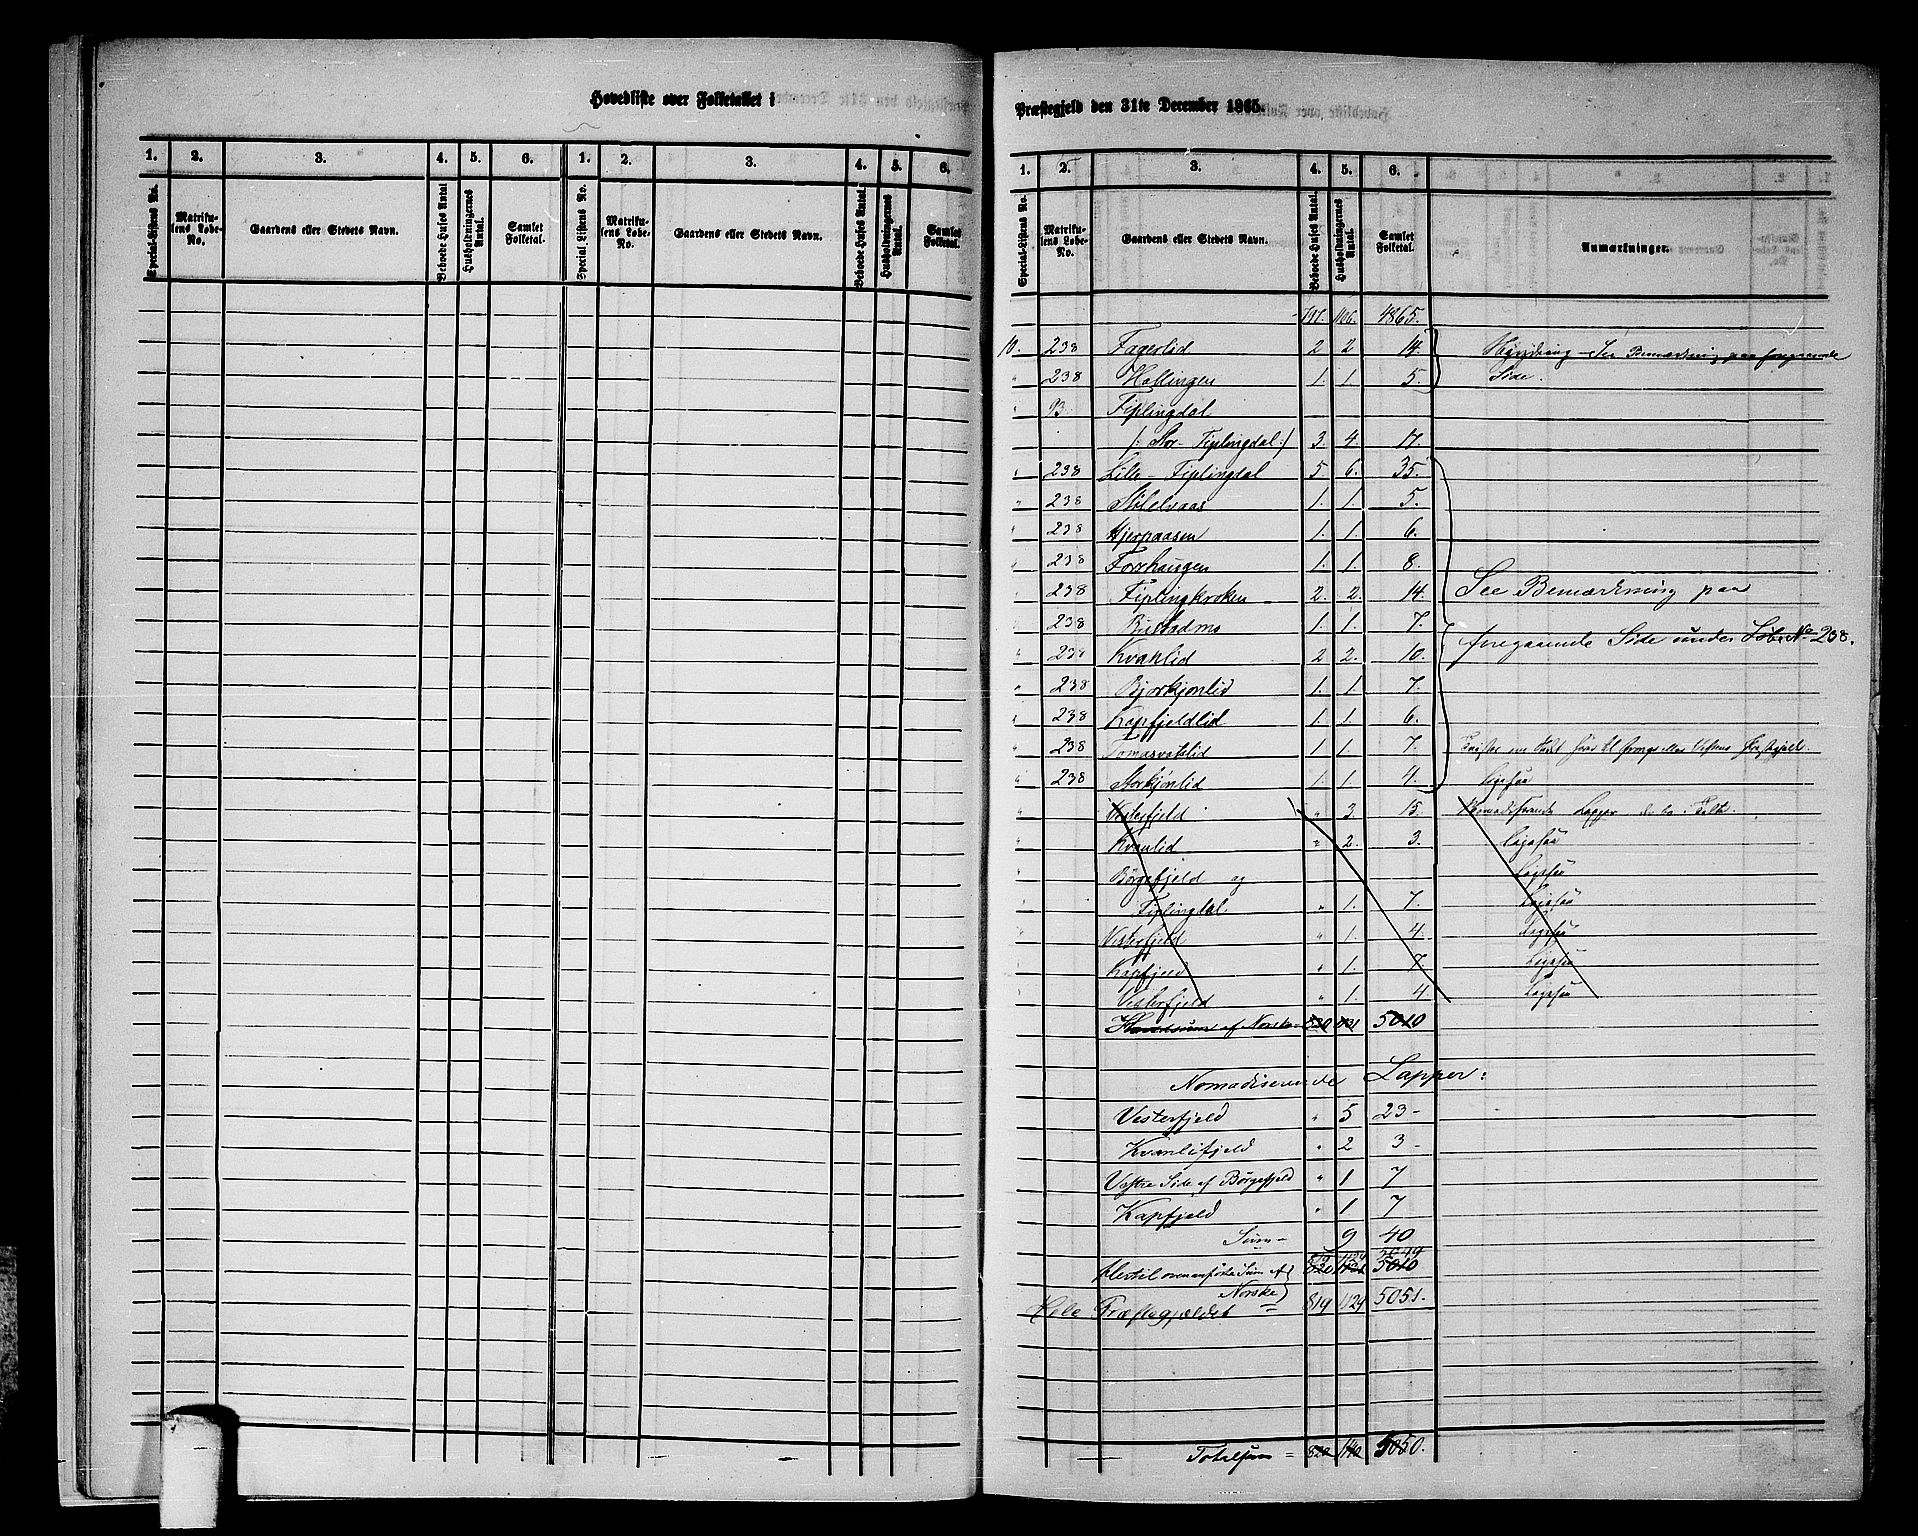 Hovedliste over Folketallet i
1. 2. 3. 4. 5. 6. 1. 2. 3. 4. 5. 6.
Special-Listens No. Matrikulens Løbe-No. Gaardens eller Stedets Navn. Beboede Huses Antal Husholdningernes Antal. Samlet Folketal. Special Listens No. Matrikulens Løbe-No. Gaardens eller Stedets Navn. Beboede Huses Antal. Husholdningernes Antal. Samlet Folketal.
Præstegjeld den 31te December 1865.
1. 2. 3. 4. 5. 6.
Special-Listens No. Matrikulens Løbe-No. Gaardens eller Stedets Navn. Beboede Huses Antal. Husholdningernes Antal. Samlet Folketal. Anmærkninger.
4865.
10. 238 Fagerlid 2 2 14. See Bemærkning paa foregaaende
" 238 Hallingen 1. 1. 5. Side.
" 93 Fiplingdal
(: Stor- Fiplingdal :) 3. 4. 17.
" 238 Lille- Fiplingdal 5 6. 35.
" 238 1. 1. 5.
" 238 Hjerpaasen 1. 1. 6.
" 238 Forhaugen 1. 1. 8.
" 238 Fiplingkroken 2. 2. 14. See Bemærkning paa
" 238 1. 1. 7. foregaaende Side under Løbe No 238.
" 238 Kvanlid 2 2. 10.
" 238 Bjorkjønlid 1. 1. 7.
" 238 Kapfjeldlid 1. 1. 6.
" 238 Tomasvatslid 1. 1. 7.
" 238 Storkjønlid 1. 1. 4. Ligesaa
" Vesterfjeld " 3. 15. Nomadiserende Lapper
" Kvanlid " 2. 3. Ligesaa
Børgefjeld og Ligesaa
Fiplingdal " 1. 7. Ligesaa
Vesterfjeld " 1. 4. Ligesaa
Kapfjeld " 1. 7. Ligesaa
Vesterfjeld " 1. 4 Ligesaa
Hovedsum af Norske 820 1131 5010
Nomadiserende Lapper:
Vesterfjeld " 5 23-
Kvanlifjeld " 2 3-
Vestre Side af Børgefjeld " 1 7
Kapfjeld " 1 7
Sum- 9 40
Hertil ovenanførte Sum af 820 1131 5010
Norske
Hele Præstegjeldet = 819 1124 5051.
Totalsum = 820 1140 5050.